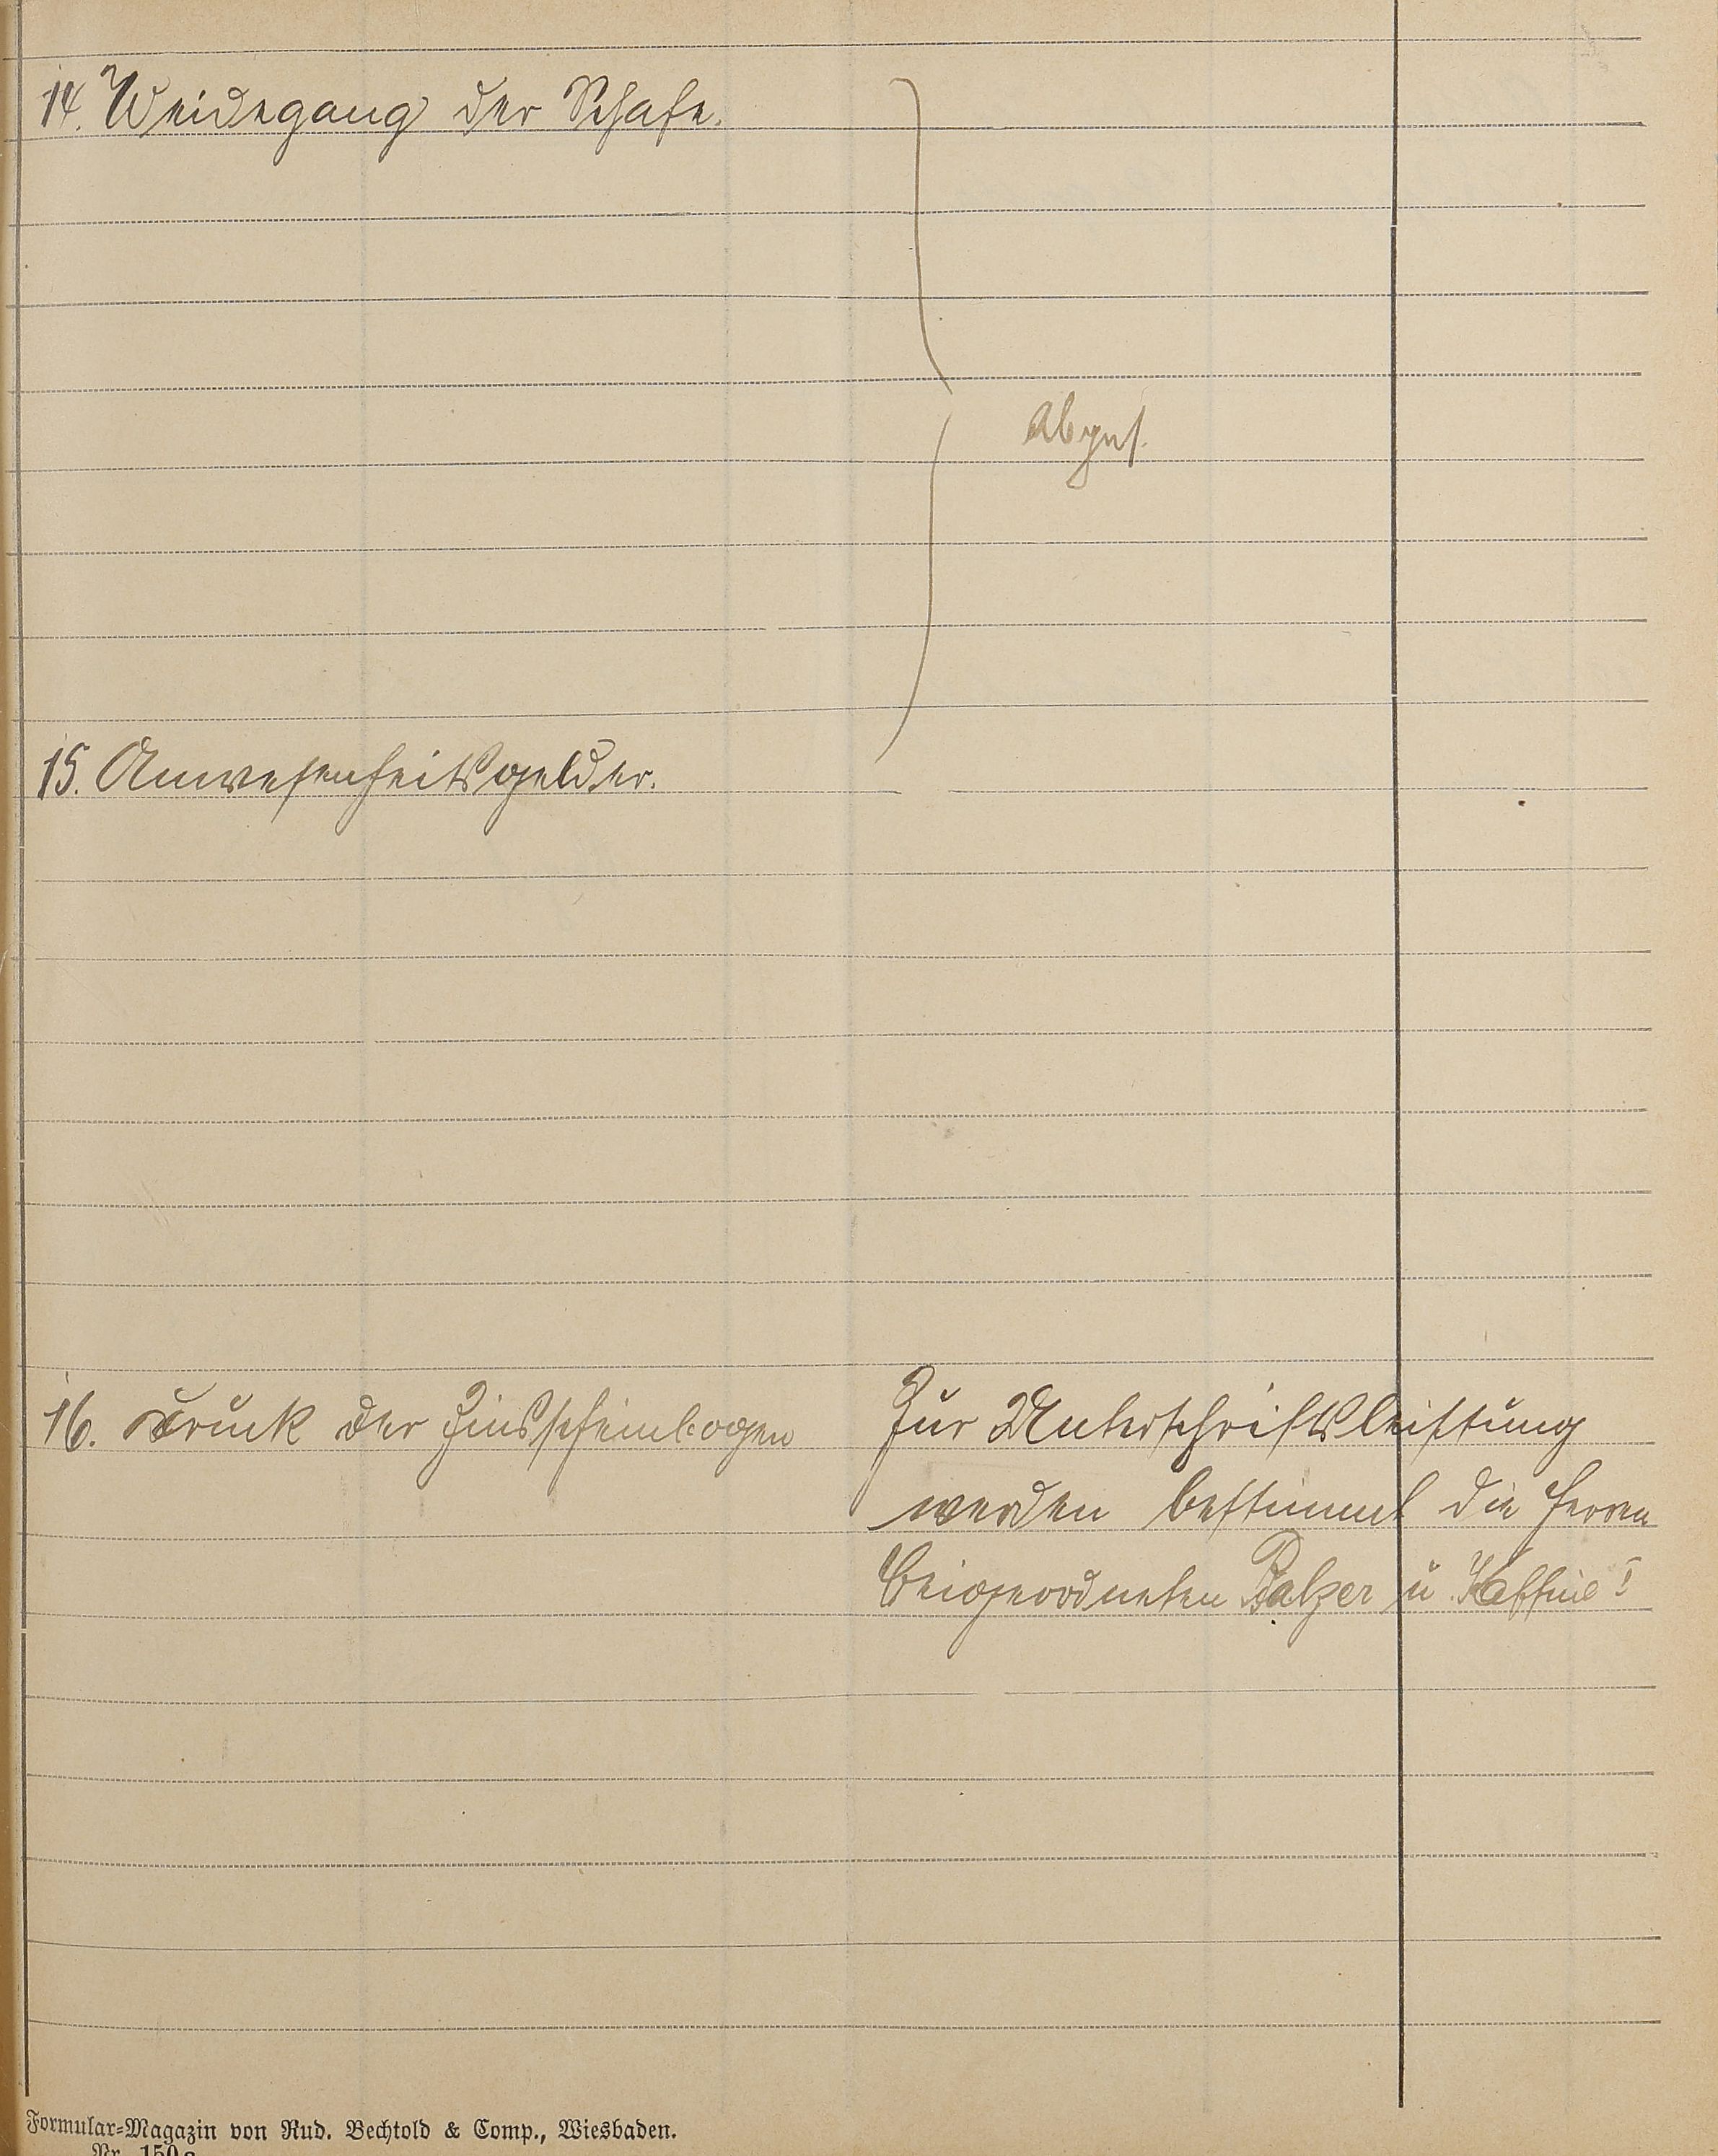 14. Weidegang der Schafe.
Abges.
15. Anwesenheitsgelder.
16. Druck der Zinsscheinbogen
Zur Unterschriftsleistung
werden bestimmt die Herren
Beigeordneten Balzer u.
Formular=Magazin von Rud. Bechtold & Comp., Wiesbaden.
Nr. 150